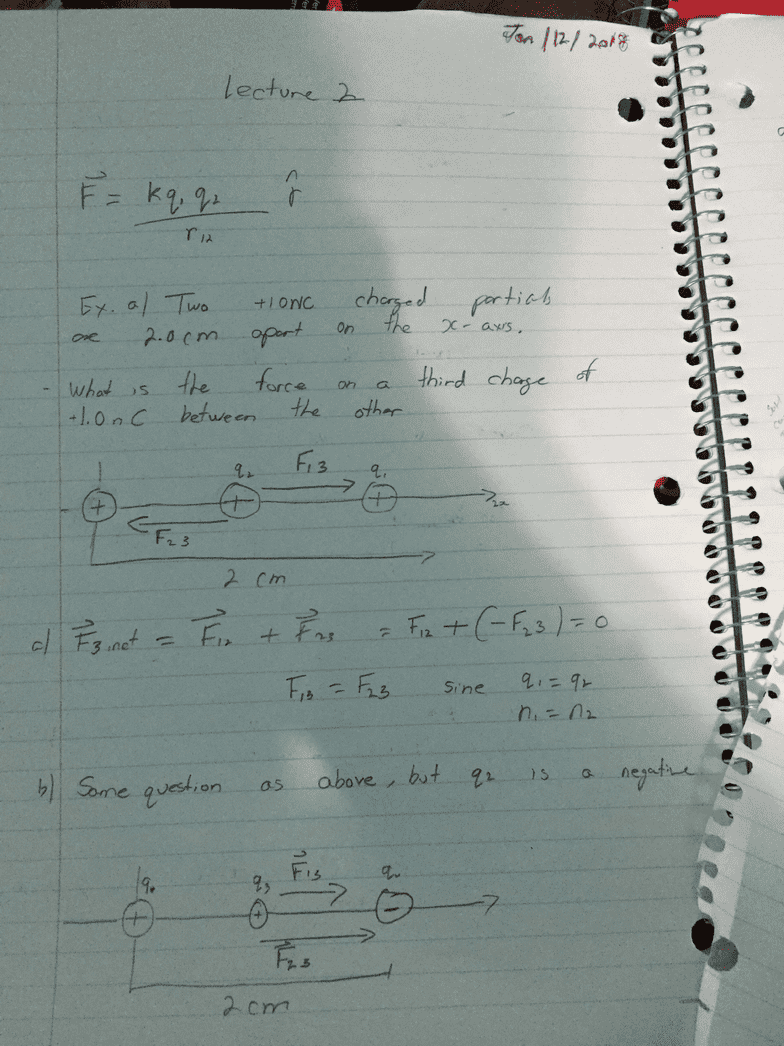 Jan /12/ 2018
Lecture 2
F⃗ = kq₁q₂ / r₁₂ r̂
Ex. a) Two +10nC charged partials
are 2.0 cm apart on the x-axis.
- What is the force on a third charge of
+1.0 nC between the other
q₂ F₁₃ q₁
+ + +
F₂₃
2 cm
c) F⃗₃ net = F⃗₁₂ + F⃗₂₃ = F₁₂ + (-F₂₃) = 0
F₁₃ = F₂₃ sine q₁ = q₂
n₁ = n₂
b) Same question as above, but q₂ is a negative
q₃ F⃗₁₃
+ + -
F⃗₂₃
2 cm